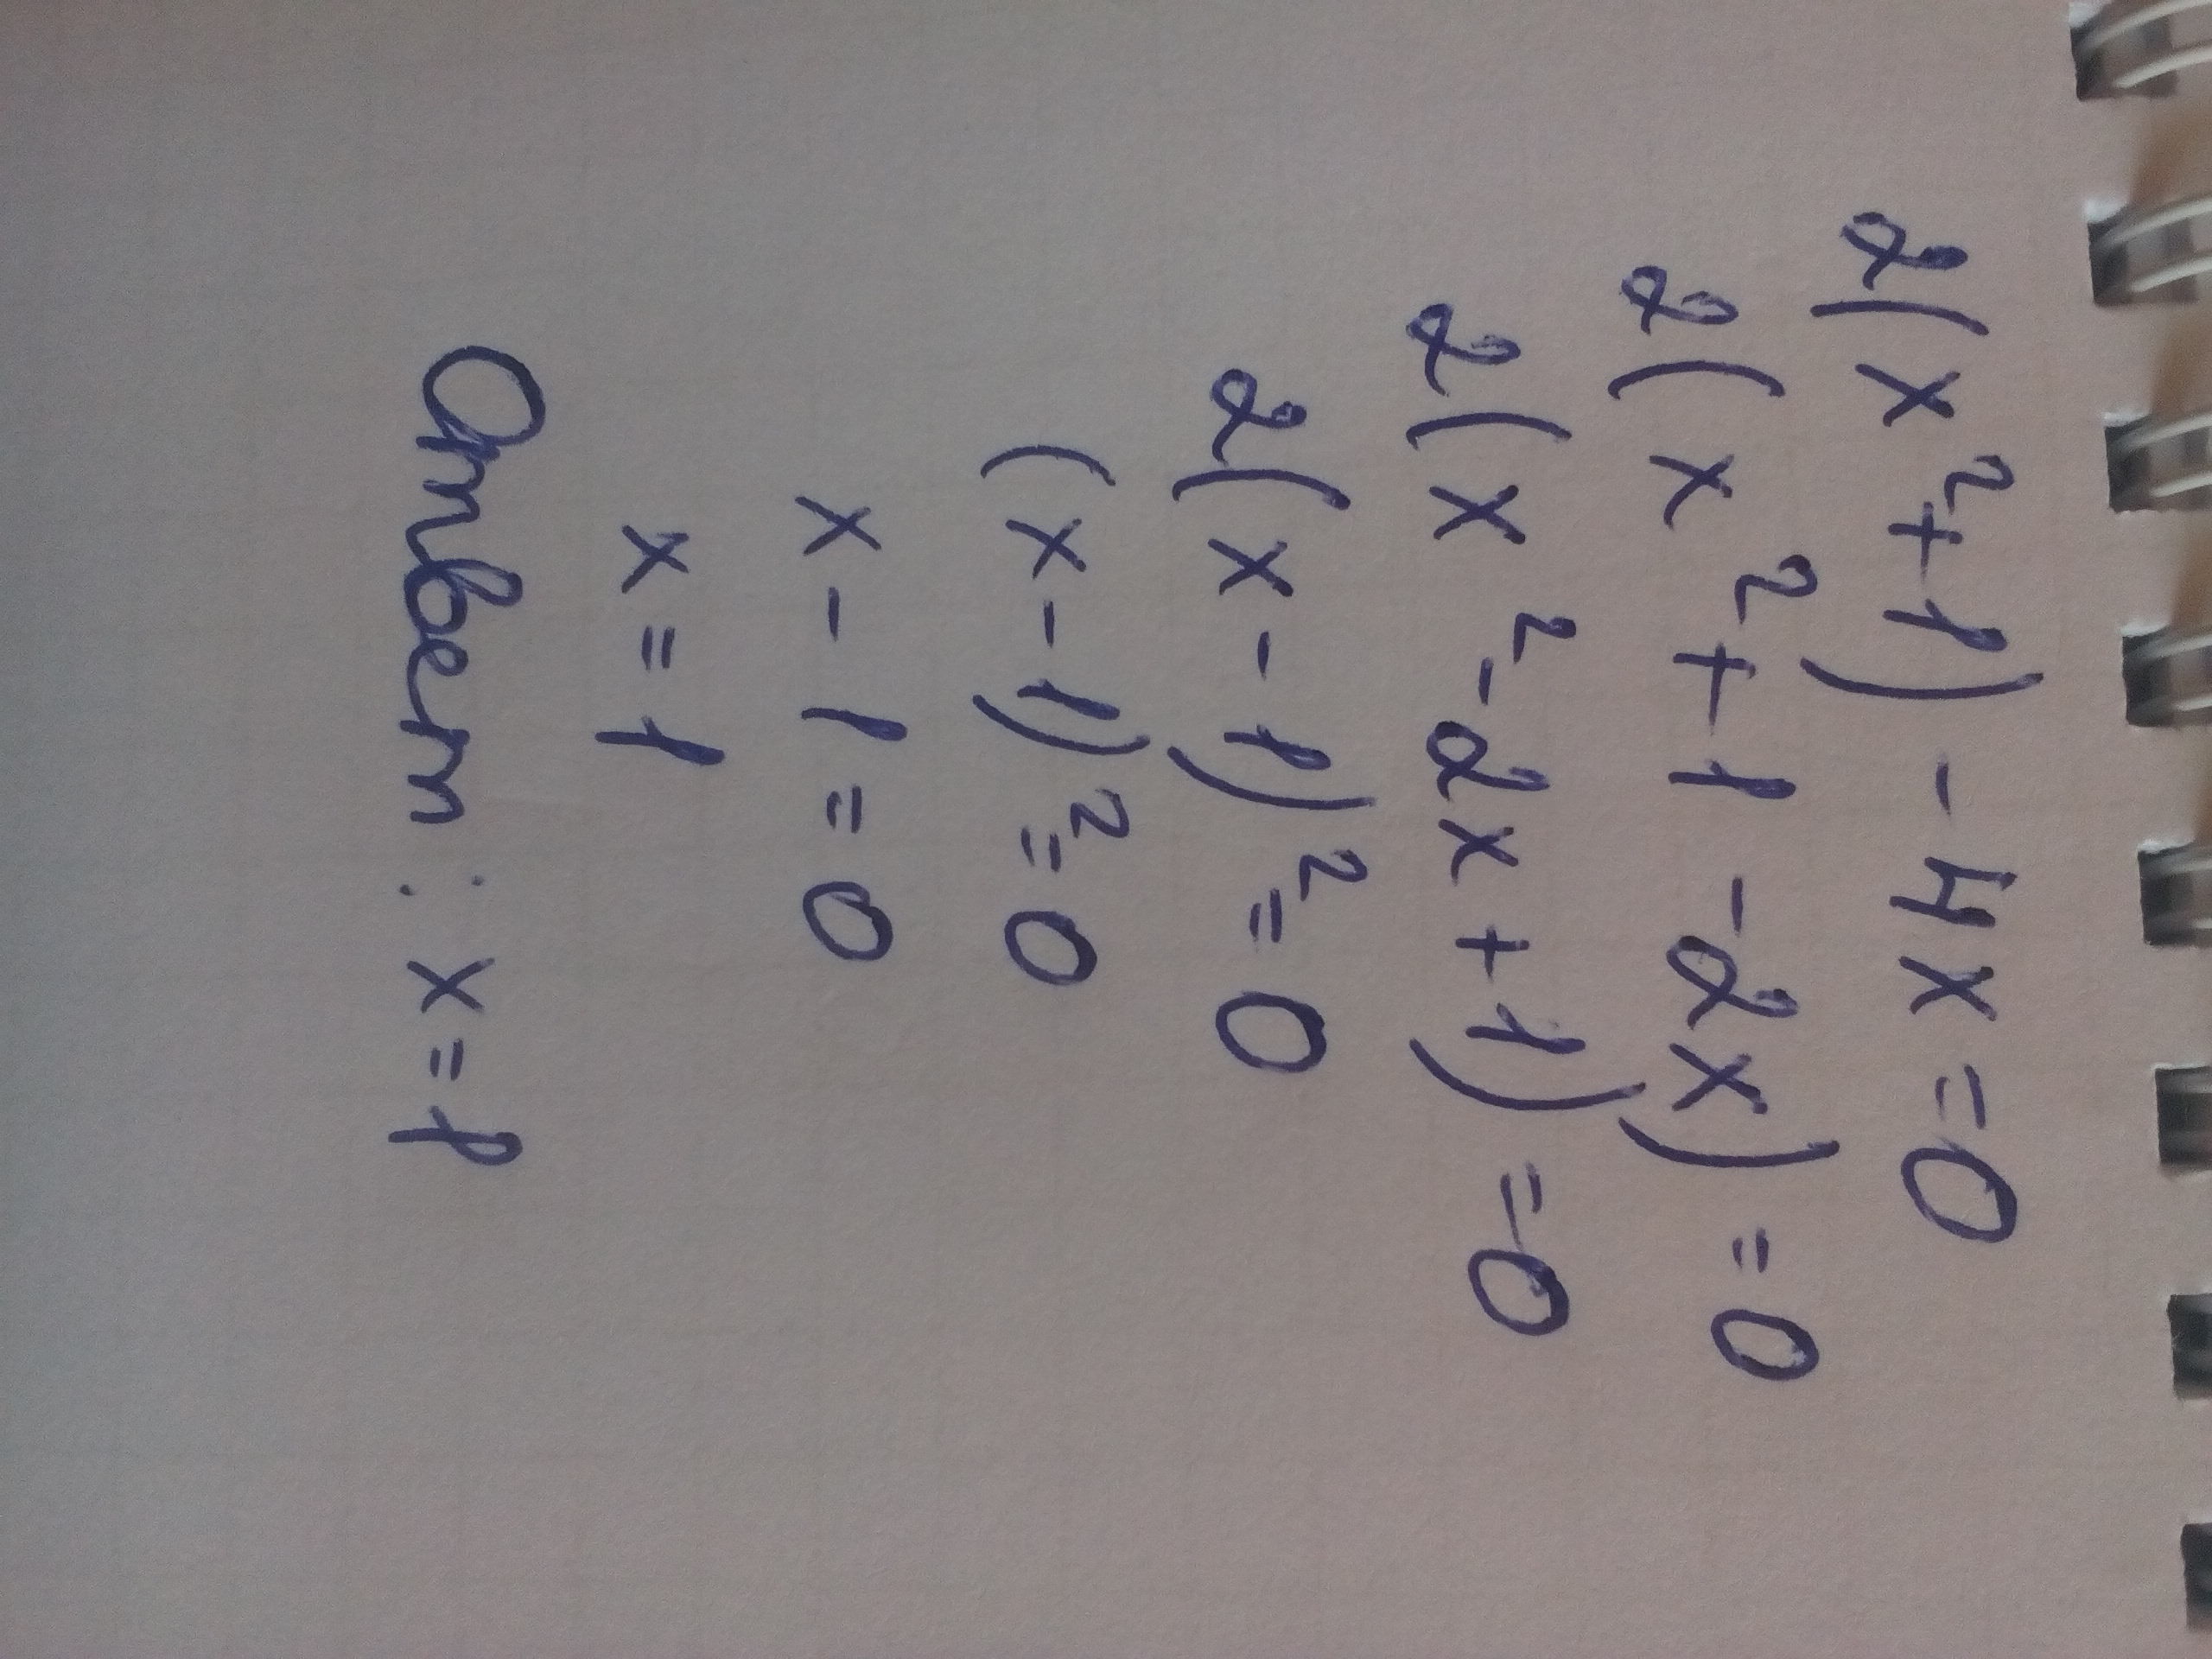 2(x²+1) - 4x = 0
2(x²+1 - 2x) = 0
2(x² - 2x + 1) = 0
2(x - 1)² = 0
(x - 1)² = 0
x - 1 = 0
x = 1
Ответ: x = 1